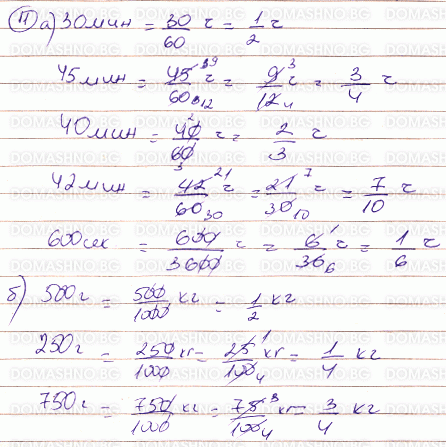 11 а) 30 мин = 30/60 ч = 1/2 ч
45 мин = 45 9/60 12 ч = 9 3/12 4 ч = 3/4 ч
40 мин = 40 2/60 3 ч = 2/3 ч
42 мин = 42 21/60 30 ч = 21 7/30 10 = 7/10 ч
600 сек = 600/3600 ч = 6 1/36 6 ч = 1/6 ч
б) 500 г = 500/1000 кг = 1/2 кг
250 г = 250/1000 кг = 25 1/100 4 кг = 1/4 кг
750 г = 750/1000 кг = 75 3/100 4 кг = 3/4 кг
DOMASHNO.BG